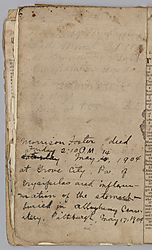 Morrison Foster died
Friday 2:10 P.M. 14
Saturday May, 14, 1904
at Grove City, Pa. of
Erysipelas and inflam-
mation of the stomach
buried in Allegheny Ceme-
tery, Pittsburgh May 17, 1904